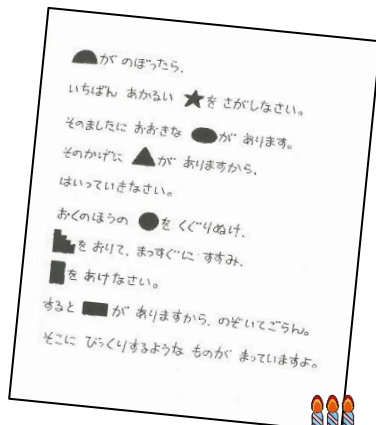 がのぼったら、
いちばん あかるい ★を さがしなさい。
そのましたに おおきな ⬬が あります。
そのかげに ▲が ありますから、
はいっていきなさい。
おくのほうの ●を くぐりぬけ、
を おりて、まっすぐに すすみ、
▮を あけなさい。
すると ▬が ありますから、のぞいてごらん。
そこに びっくりするような ものが まっていますよ。